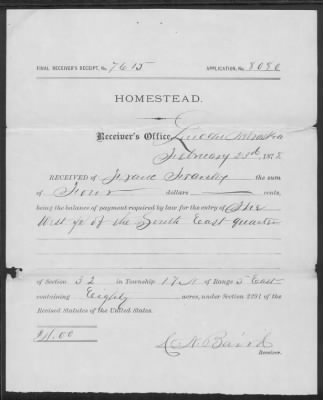 FINAL RECEIVER'S RECEIPT, No. 7615 APPLICATION, No. 8080
HOMESTEAD.
Receiver's Office, Lincoln Nebraska
February 23rd, 1878
RECEIVED of the sum
of Four dollars cents,
being the balance of payment required by law for the entry of The
West ½ of the South East quarter
of Section 32 in Township 17 N of Range 5 East
containing Eighty acres, under Section 2291 of the
Revised Statutes of the United States.
$4.00
Receiver.